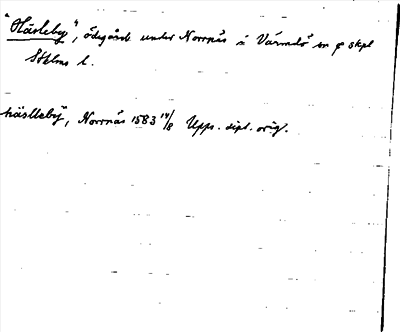 "Hästeby", ödegård under Norrnäs i Värmdö sn o skpl
Sthlms l.
hästleby, Norrnäs 1583 14/8 Upps. dipl. orig.